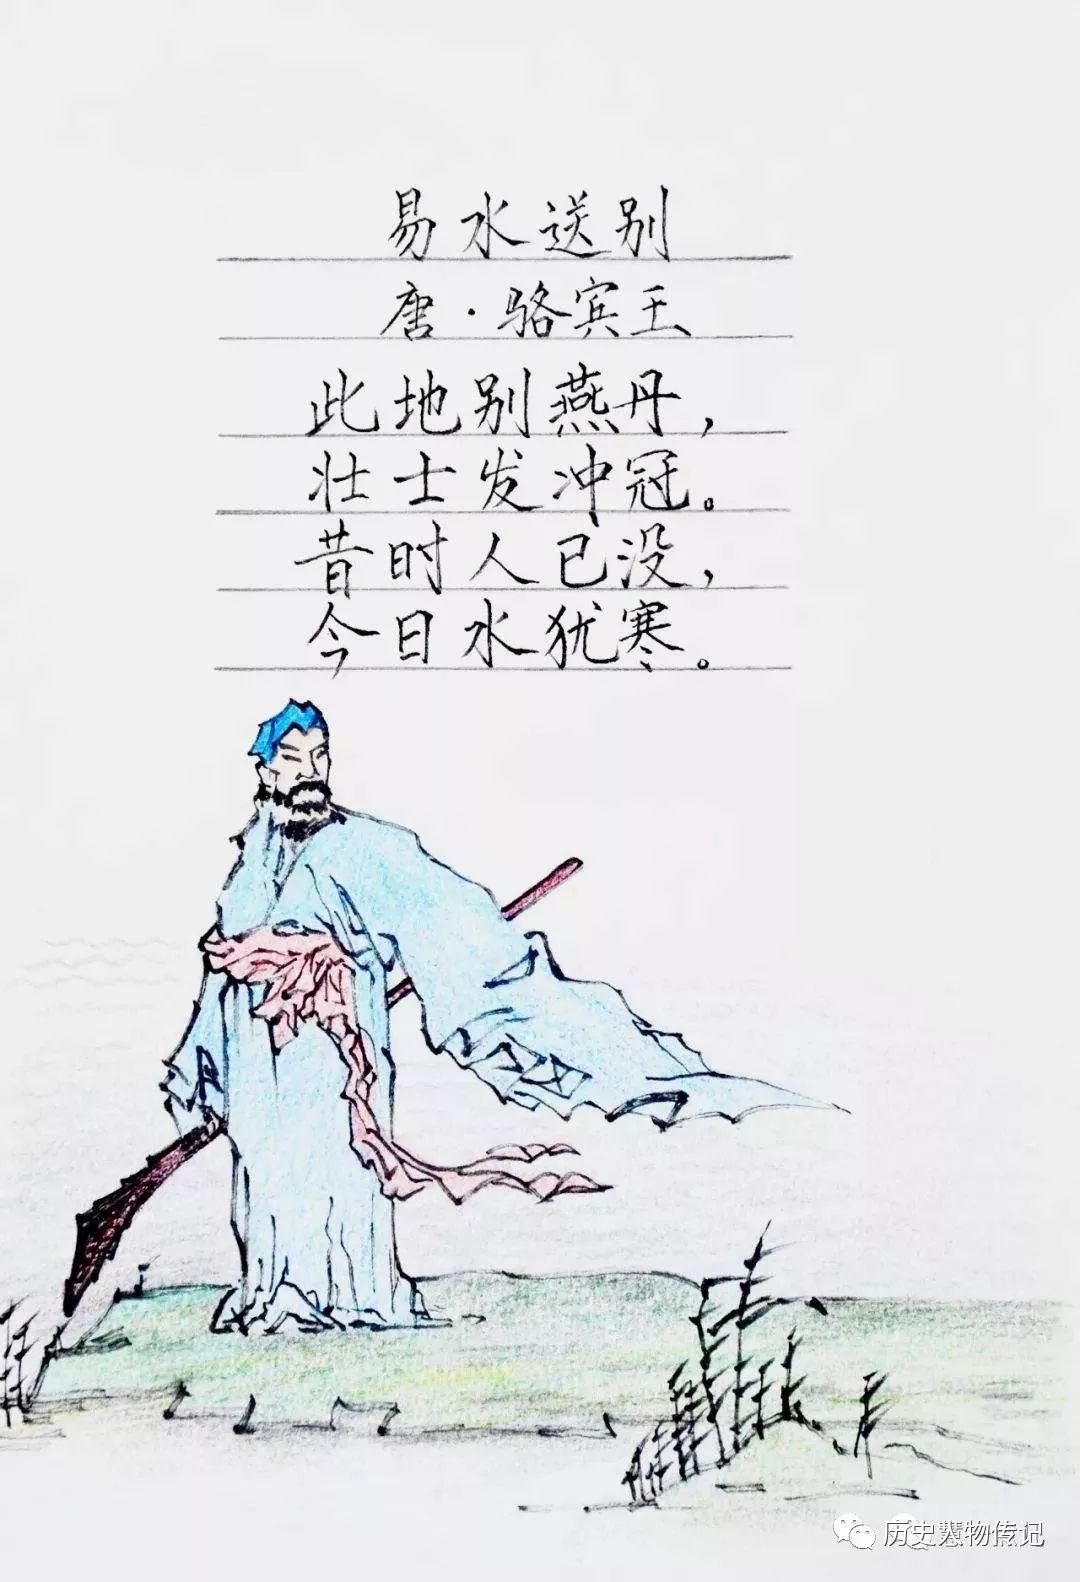 易水送别
唐·骆宾王
此地别燕丹，
壮士发冲冠。
昔时人已没，
今日水犹寒。
历史慧物传记